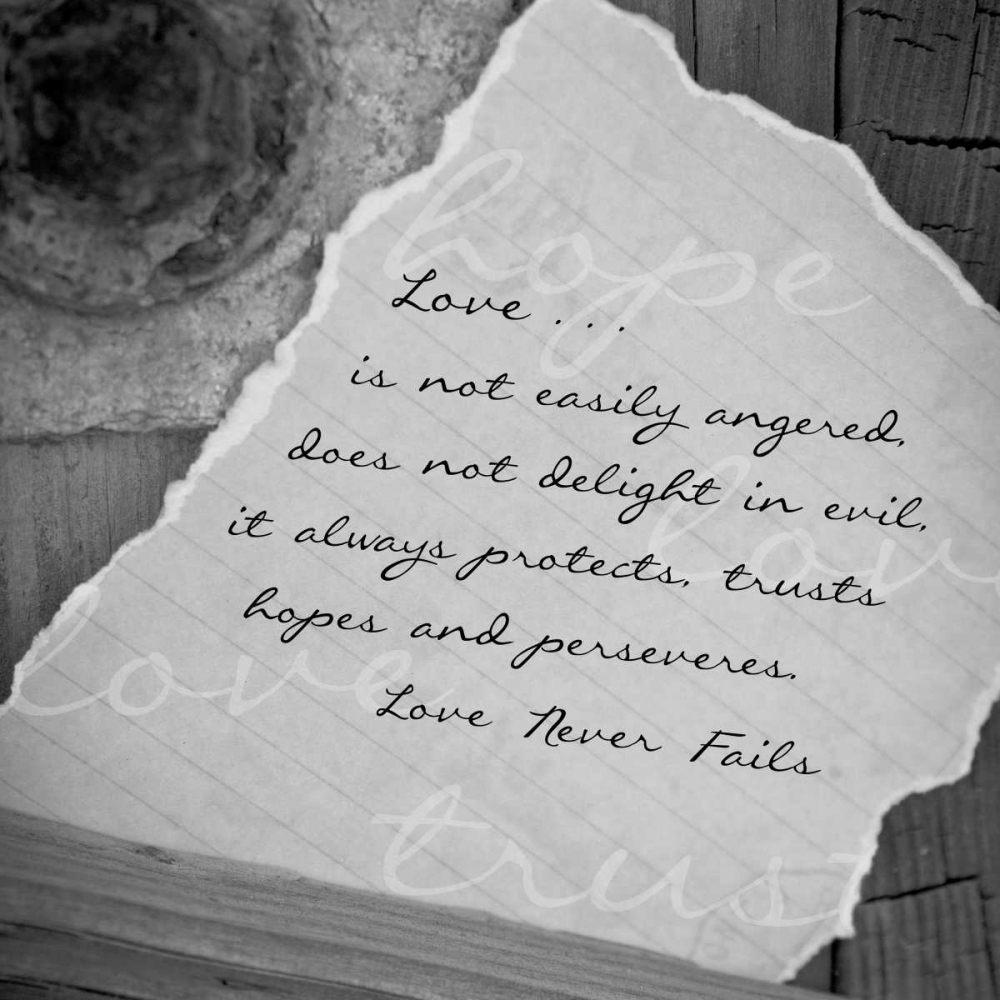 hope
Love . . .
is not easily angered,
does not delight in evil,
it always protects, trusts
hopes and perseveres.
Love Never Fails
love
love
trust